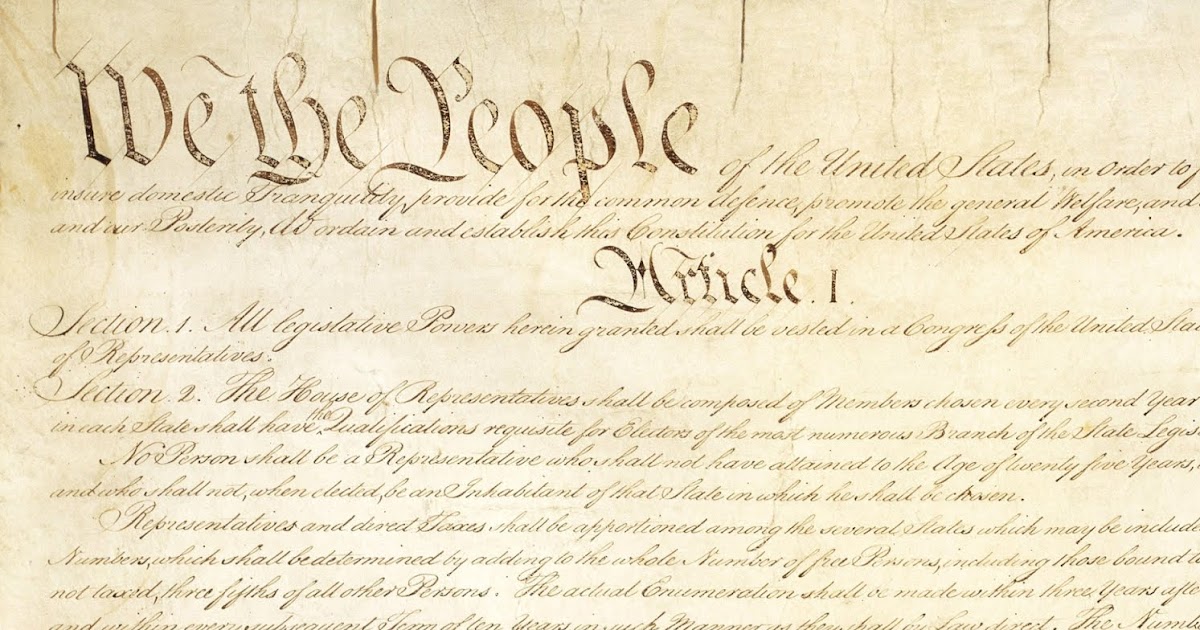 We the People of the United States, in Order to
insure domestic Tranquility, provide for the common defence, promote the general Welfare, and
and our Posterity, do ordain and establish this Constitution for the United States of America.
Article. I.
Section. 1. All legislative Powers herein granted shall be vested in a Congress of the United Sta
of Representatives.
Section. 2. The House of Representatives shall be composed of Members chosen every second Year
in each State shall have the Qualifications requisite for Electors of the most numerous Branch of the State Legis
No Person shall be a Representative who shall not have attained to the Age of twenty five Years,
and who shall not, when elected, be an Inhabitant of that State in which he shall be chosen.
Representatives and direct Taxes shall be apportioned among the several States which may be includ
Numbers, which shall be determined by adding to the whole Number of free Persons, including those bound t
not taxed, three fifths of all other Persons. The actual Enumeration shall be made within three Years afte
and within every subsequent Term of ten Years, in such Manner as they shall by Law direct. The Numb